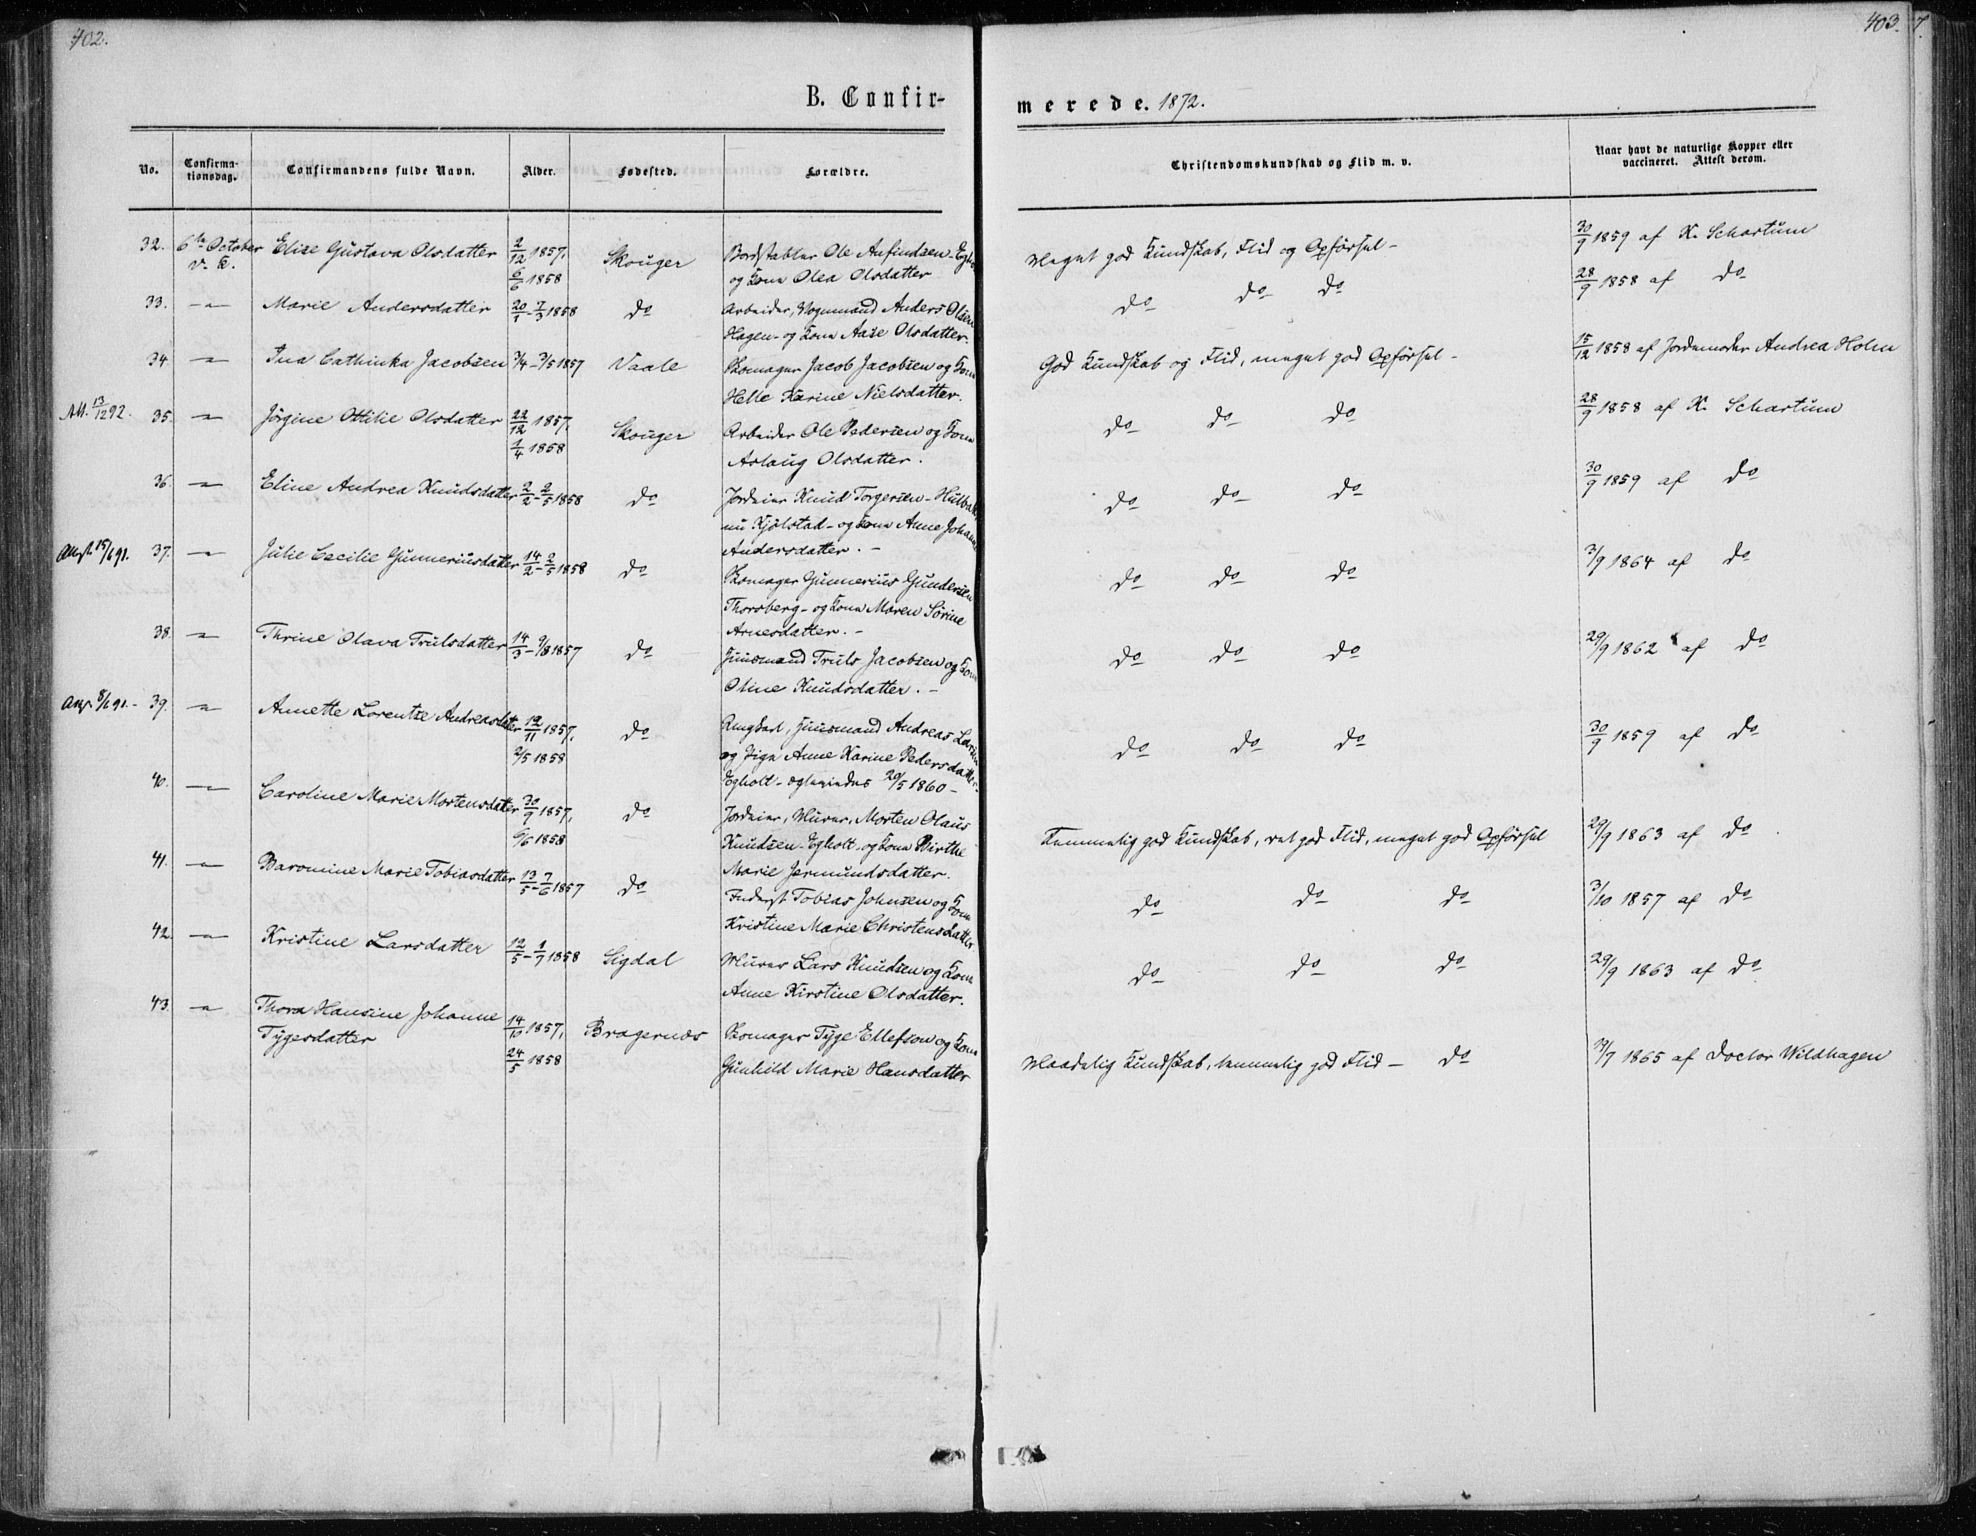 402.
403. 7.
B. Confir-
merede. 1872.
No.
Confirma-
tionsdag.
Confirmandens fulde Navn.
Alder.
Fødested.
Forældre.
Christendomskundskab og Flid m. v.
Naar havt de naturlige Kopper eller
vaccineret. Attest derom.
32. 6te October Elise Gustava Olsdatter 2/12 1857, Skouger Bordstabler Ole Anfindsen
v. K. 6/6 1858 og Kone Olea Olsdatter
Meget god Kundskab, Flid og Opförsel - 30/9 1859 af K. Schartum
33. -"- Marie Andersdatter 20/1 - 7/3 1858 do Arbeider, Anders Olsen
Hagen - og Kone Aase Olsdatter.
do do do 28/9 1858 af do
34. -"- Ina Cathinka Jacobsen 3/4 - 3/5 1857 Vaale Skomager Jacob Jacobsen og Kone
Helle Karine Nielsdatter.
God Kundskab og Flid, meget god Opförsel - 15/12 1858 af Jordemoder Andrea Holm
Att. 13/12 92. 35. -"- Jörgine Ottilie Olsdatter 22/12 1857, Skouger Arbeider Ole Pedersen og Kone
1/4 1858 Aslaug Olsdatter.
do do do 28/9 1858 af K. Schartum
36. -"- Eline Andrea Knudsdatter 2/2 - 2/5 1858 do Jordeier Knud Torgersen -
nu Kjölstad - og Kone Anne Johanne
Andersdatter. -
do do do 30/9 1859 af do
15/6 91. 37. -"- Julie Cecilie Gunneriusdatter 14/2 - 2/5 1858 do Skomager Gunnerius Gundersen
Thorsberg - og Kone Maren Sörine
Arnesdatter. -
do do do 3/9 1864 af do
38. -"- Thrine Olava Trulsdatter 14/3 - 9/8 1857 do Huusmand Truls Jacobsen og Kone
Oline Knudsdatter. -
do do do 29/9 1862 af do
8/6 91. - 39. -"- Annette Lorentze Andreasdatter 12/11 1857, do Ungkarl, Huusmand Andreas
2/5 1858 og Pige Anne Karine Pedersdatter -
Egholt - ægteviedes 20/5 1860 -
do do do 30/9 1859 af do
40. -"- Caroline Marie Mortensdatter 30/9 1857, do Jordeier, Murer, Morten Olaus
6/6 1858 Knudsen - Egholt - og Kone Birthe
Marie Jermundsdatter.
Temmelig god Kundskab, ret god Flid, meget god Opförsel 29/9 1863 af do
41. -"- Baromine Marie Tobiasdatter 13/5 - 7/6 1857 do Inderst Tobias Johnsen og Kone
Kristine Marie Christensdatter
do do do 3/10 1857 af do
42. -"- Kristine Larsdatter 12/5 - 1/7 1858 Sigdal Murer Lars Knudsen og Kone
Anne Kirstine Olsdatter.
do do do 29/9 1863 af do
43. -"- Thora Hansine Johanne 14/10 1857, Bragernæs Skomager Tyge Ellefsen og Kone
Tygesdatter 24/5 1858 Gunhild Marie Hansdatter
Maadelig Kundskab, temmelig god Flid - do /7 1865 af Doctor Wildhagen